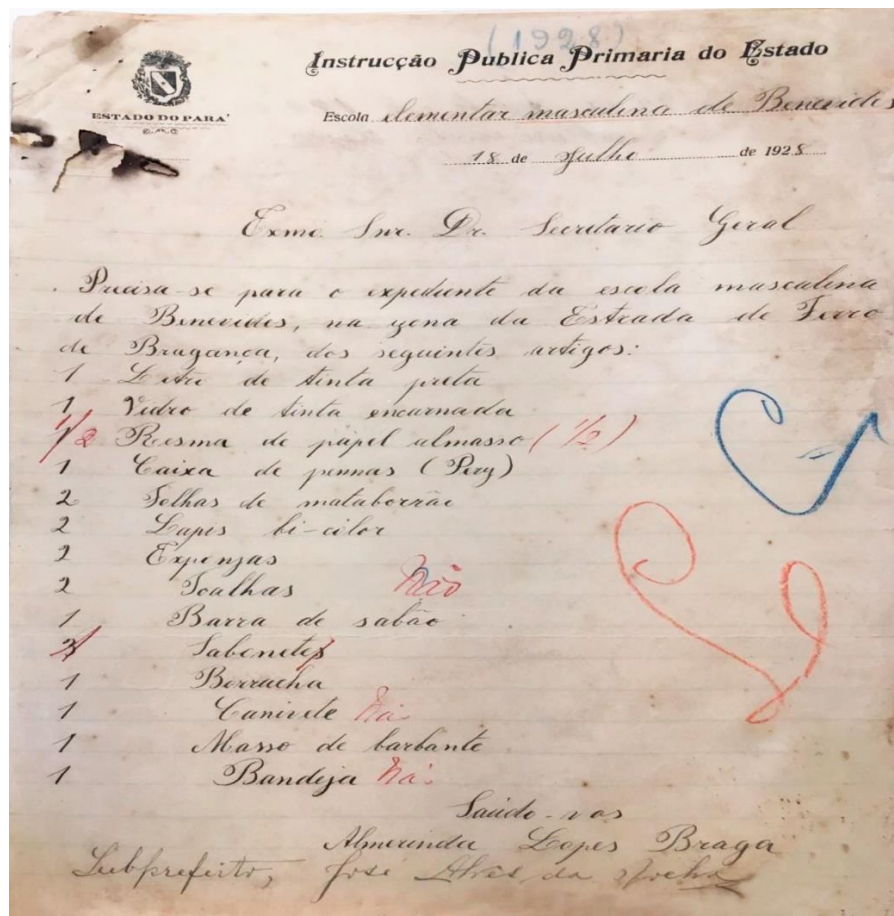 (1928)
Instrucção Publica Primaria do Estado
ESTADO DO PARA'
Escola elementar masculina de Benevides
18 de Julho de 1928
Exmo. Snr. Dr. Secretario Geral
Precisa-se para o expediente da escola masculina
de Benevides, na zona da Estrada de Ferro
de Bragança, dos seguintes artigos:
1 Litro de tinta preta
1 Vidro de tinta encarnada
1/2 Resma de papel almasso (1/2)
1 Caixa de pennas (Pery)
2 Folhas de mataborrão
2 Lapis bi-color
2 Esponjas
2 Toalhas Não
1 Barra de sabão
Sabonetes
1 Borracha
1 Canivete Não
1 Masso de barbante
1 Bandeja Não
Saúdo-vos
Almerinda Lopes Braga
Subprefeito, José Alves da Rocha